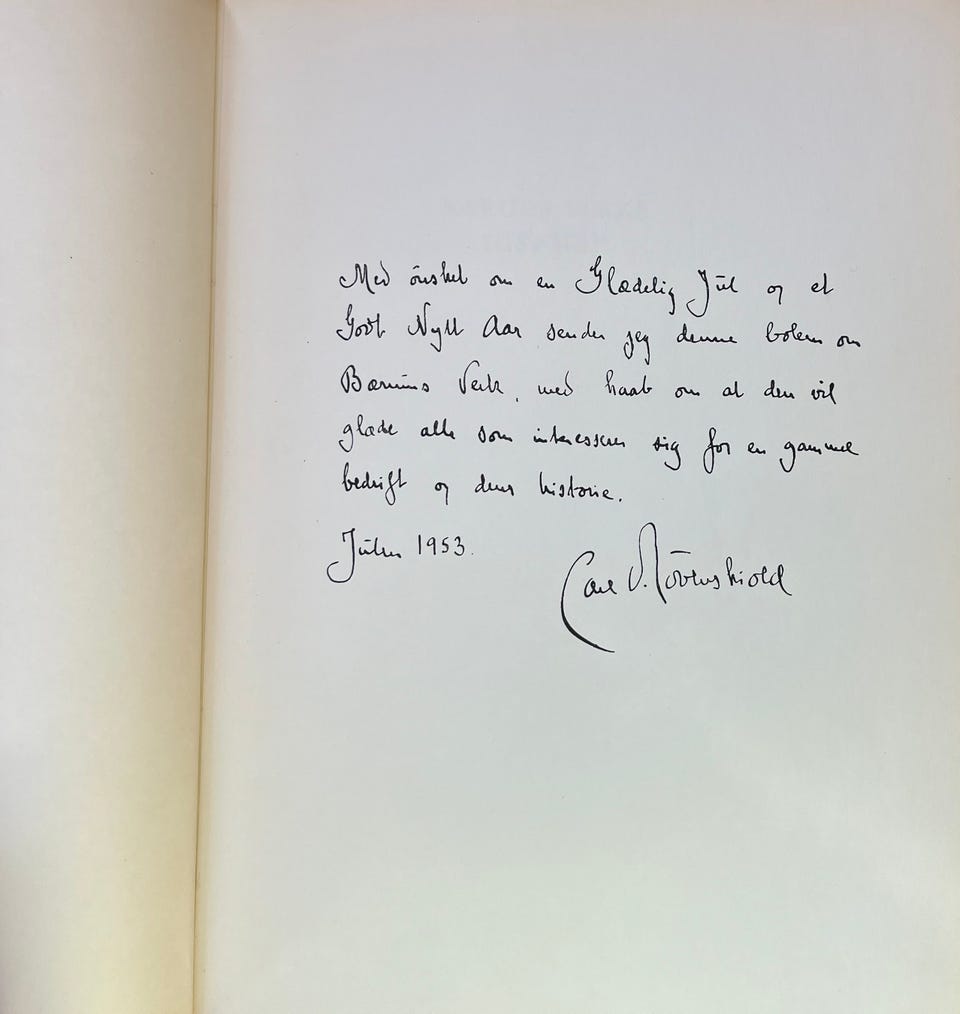 Med ønsket om en Glædelig Jul og et
Godt Nytt Aar sender jeg denne boken om
Bærums Verk, med haab om at den vil
glæde alle som interesserer sig for en gammel
bedrift og dens historie.
Julen 1953.
Carl O. Løvenskiold